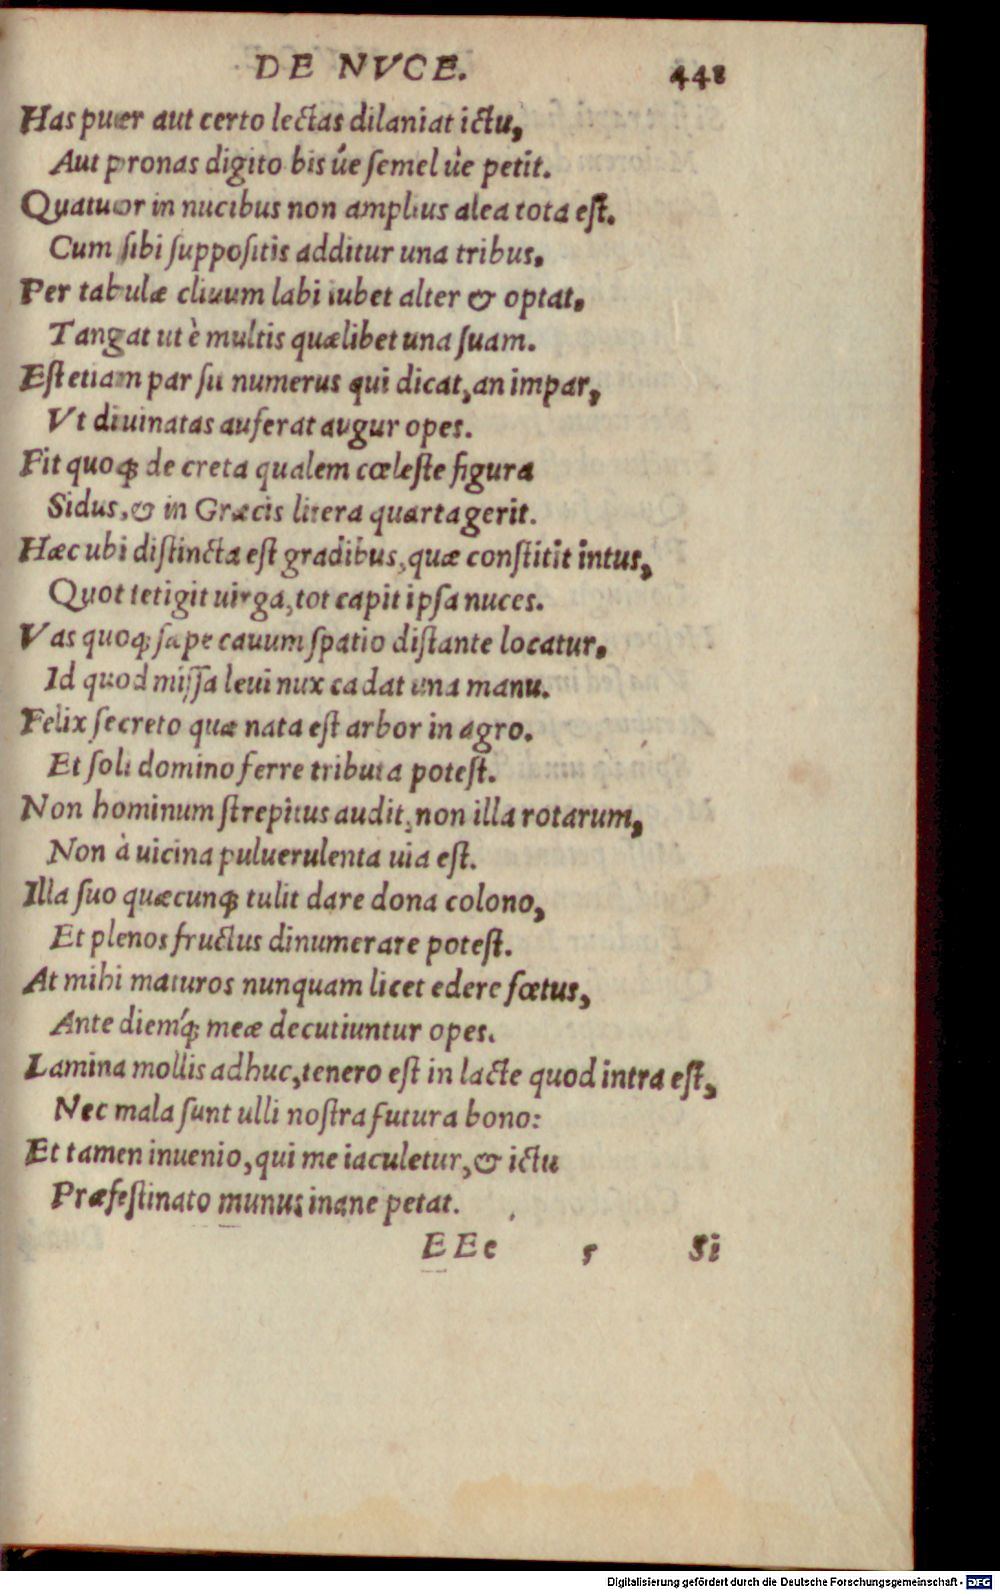 DE NVCE. 448
Has puer aut certo lectas dilaniat ictu,
Aut pronas digito bis úe ſemel ùe petit.
Quatuor in nucibus non amplius alea tota eſt.
Cum ſibi ſuppoſitis additur una tribus.
Per tabulæ cliuum labi iubet alter & optat.
Tangat ut è multis quælibet una ſuam.
Eſt etiam par ſit numerus qui dicat, an impar,
Vt diuinatas auferat augur opes.
Fit quoq; de creta qualem cœleſte figura
Sidus, & in Græcis litera quarta gerit.
Hæc ubi diſtincta eſt gradibus, quæ conſtitit intus,
Quot tetigit uirga, tot capit ipſa nuces.
Vas quoq; ſæpe cauum ſpatio diſtante locatur.
Id quod miſſa leui nux cadat una manu.
Felix ſecreto quæ nata eſt arbor in agro.
Et ſoli domino ferre tributa poteſt.
Non hominum ſtrepitus audit, non illa rotarum,
Non à uicina puluerulenta uia eſt.
Illa ſuo quæcunq; tulit dare dona colono,
Et plenos fructus dinumerare poteſt.
At mihi maturos nunquam licet edere fœtus,
Ante diemq́; meæ decutiuntur opes.
Lamina mollis adhuc, tenero eſt in lacte quod intra eſt,
Nec mala ſunt ulli noſtra futura bono:
Et tamen inuenio, qui me iaculetur, & ictu
Præfeſtinato munus inane petat.
EEe 5 Si
Digitalisierung gefördert durch die Deutsche Forschungsgemeinschaft - DFG